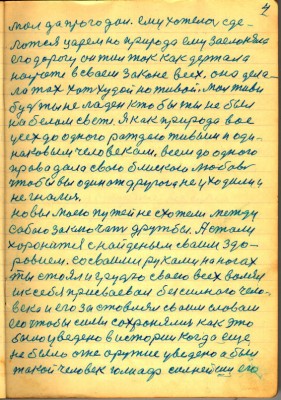 4
мол да прого дал. ему хотелось сде-
латся царем но природа ему заслоняла
его дорогу он жил так как держала
натуге в своем законе всех. она дела-
ла так хот худой но живой. мол живи
будь ты не ладен кто бы ты не был
на белом свете. Я как природа вое
усех до одного рождаю живым и оди-
наковым человекам, всем до одного
провадала свою близкою любовь
чтобы вы один от другого не уходили и
не гнали,
но вы моею путей не схотели между
собою заключать дружбы. А стали
хоронится с найденым своим здо-
ровием. со своими руками на ногах
ты стоял и грудью своею всех валял
и к себе присваевал бессилного чело-
века и его заставлял своим словам
его чтобы силы сохронялись как это
было уведено в истории когда еще
не было оже аружие уведено а был
такой человек голиаф силнейшу его